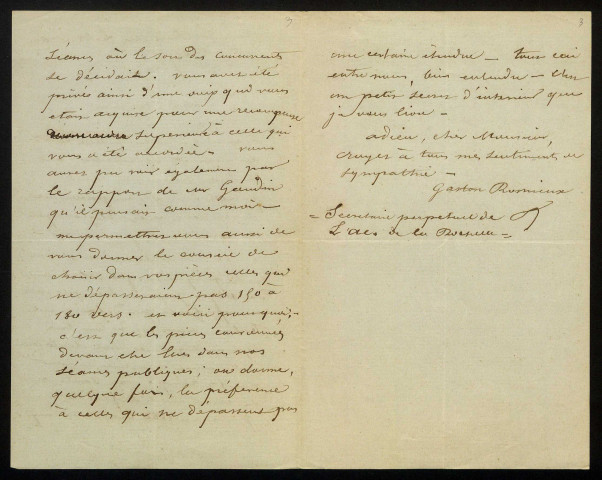 séance où le sort des concurrents
se décidait. vous avez été
privé ainsi d'une voix qui vous
était acquise pour une récompense
supérieure à celle qui
vous a été accordée. vous
avez pu voir également par
le rapport de mr Gaudin
qu'il pensait comme moi.
me permettrez vous aussi de
vous donner le conseil de
choisir dans vos pièces celles qui
ne dépasseraient pas 150 à
180 vers. et voici pourquoi ;
c'est que les pièces couronnées
devant être lues dans nos
séances publiques ; on donne,
quelque fois, la préférence
à celles qui ne dépassent pas
3
une certaine étendue — tout ceci
entre nous, bien entendu — c'est
un petit secret d'intérieur que
je vous livre.
adieu, cher Monsieur,
croyez à tous mes sentiments de
sympathie —
Gaston Romieux
= Secrétaire perpétuel de
L'acad de La Rochelle =